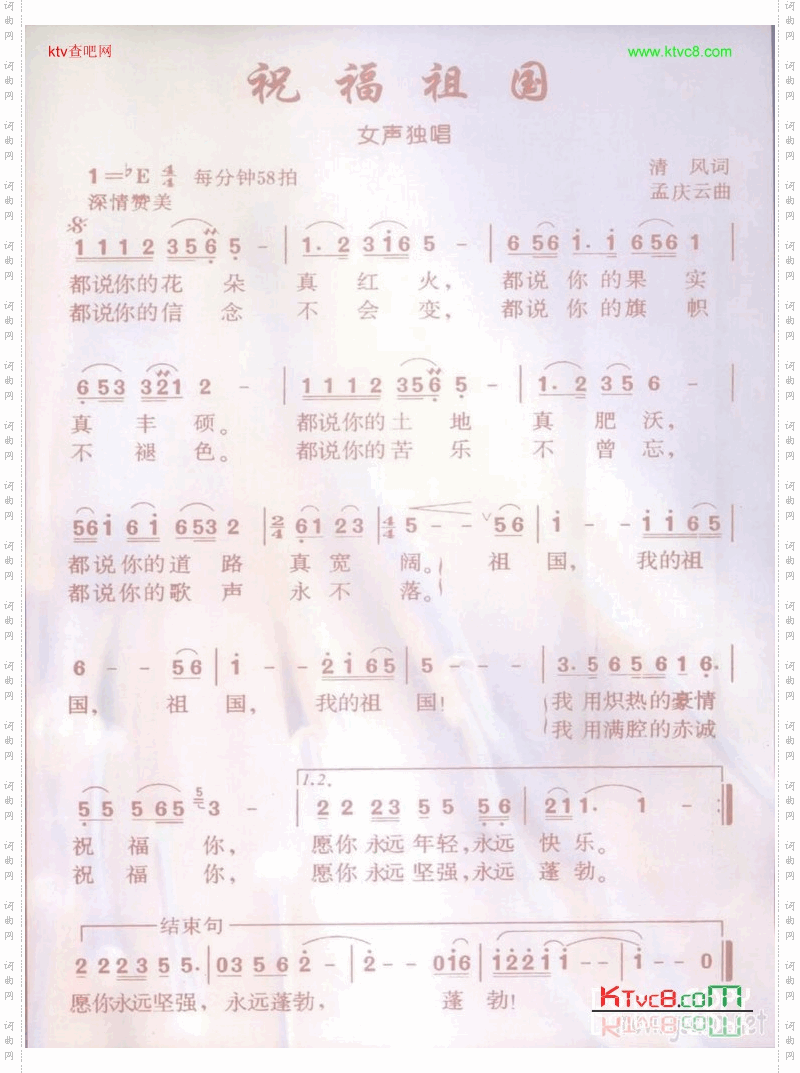 ktv查吧网
www.ktvc8.com
祝福祖国
女声独唱
1=♭E 4/4 每分钟58拍
清风词
深情赞美
孟庆云曲
1 1 1 2 3 5 6 5 - | 1. 2 3 1 6 5 - | 6 5 6 5 6 1. 1 6 5 6 1 |
都说你的花朵真红火，都说你的果实
都说你的信念不会变，都说你的旗帜
6 5 3 3 2 1 2 - | 1 1 1 2 3 5 6 5 - | 1. 2 3 5 6 -
真丰硕。都说你的土地真肥沃，
不褪色。都说你的苦乐不曾忘，
5 6 1 6 1 6 5 3 2 | 2/4 6 1 2 3 | 4/4 5 - - 5 6 | 1 - - 1 1 6 5
都说你的道路真宽阔。祖国，我的祖
都说你的歌声永不落。
6 - - 5 6 | 1 - - 2 1 6 5 | 5 - - - | 3. 5 6 5 6 1 6.
国，祖国，我的祖国！我用炽热的豪情
我用满腔的赤诚
5 5 5 6 5 5 3 - | 1.2. 2 2 2 3 5 5 5 6 | 2 1 1. 1 - :|
祝福你，愿你永远年轻，永远快乐。
祝福你，愿你永远坚强，永远蓬勃。
结束句
2 2 2 3 5 5. | 0 3 5 6 2 - | 2 - - 0 1 6 | 1 2 2 1 1 - - | 1 - - 0
愿你永远坚强，永远蓬勃，蓬勃！
KTvc8.com